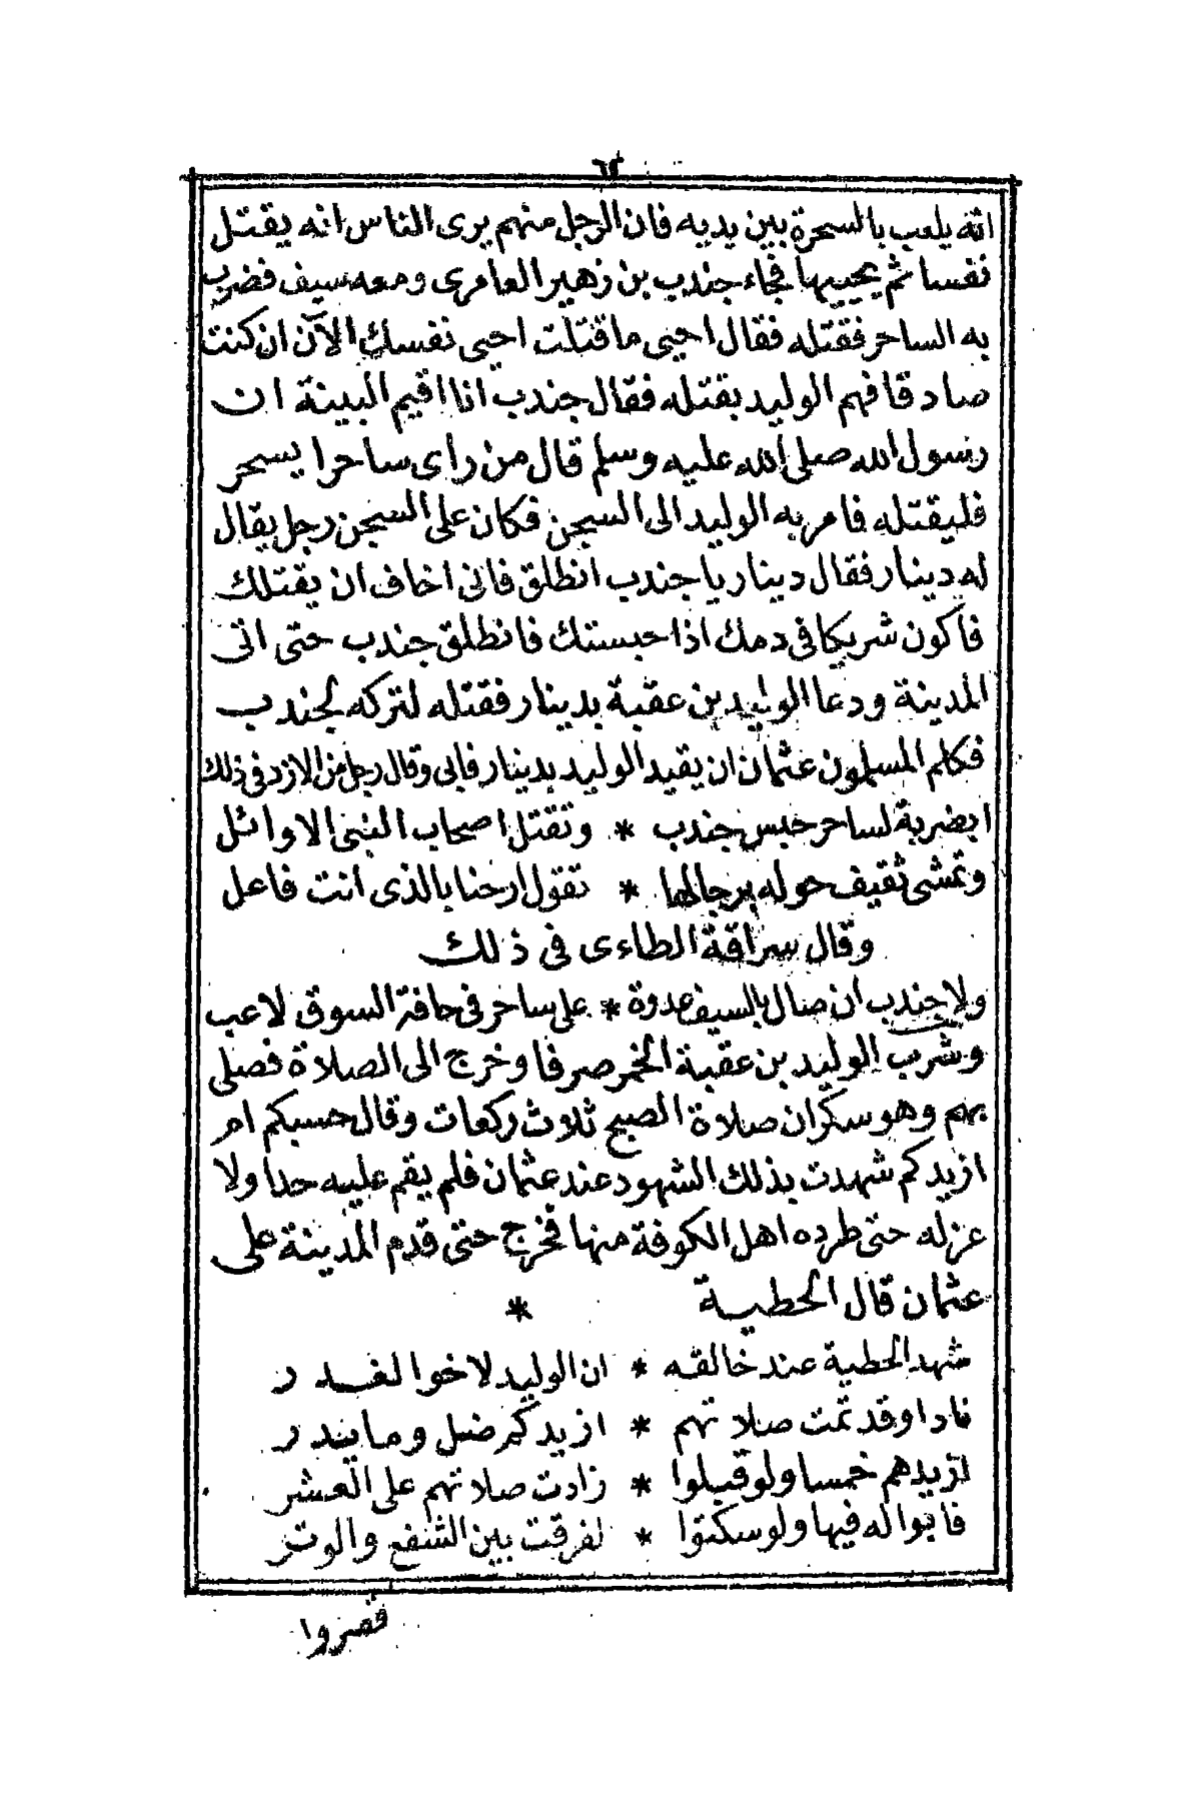 ٦٤
انه يلعب بالسحرة بين يديه فان الرجل منهم يرى الناس انه يقتل
نفسا ثم يحييها فجاء جندب بن زهير العامرى ومعه سيف فضرب
به الساحر فقتله فقال احيى ما قتلت احيى نفسك الآن ان كنت
صادقا فهم الوليد بقتله فقال جندب انا اقيم البينة ان
رسول الله صلى الله عليه وسلم قال من راى ساحرا يسحر
فليقتله فامر به الوليد الى السجن فكان على السجن رجل يقال
له دينار فقال دينار يا جندب انطلق فانى اخاف ان يقتلك
فأكون شريكا فى دمك اذا حبستك فانطلق جندب حتى اتى
المدينة ودعا الوليد بن عقبة بدينار فقتله لتركه لجندب
فكلم المسلمون عثمان ان يقيد الوليد بدينار فابى وقال رجل من الازد فى ذلك
ابضربة لساحر حبس جندب * وتقتل اصحاب النبى الاوائل
وتمشى ثقيف حوله برجالها * تقول ارحنا بالذى انت فاعل
وقال سراقة الطاءى فى ذلك
ولا جندب ان صال بالسيف عدوة * على ساحر فى حافة السوق لاعب
وشرب الوليد بن عقبة الخمر صرفا وخرج الى الصلاة فصلى
بهم وهو سكران صلاة الصبح ثلاث ركعات وقال حسبكم ام
ازيدكم شهدت بذلك الشهود عند عثمان فلم يقم عليه حدا ولا
عزله حتى طرده اهل الكوفة منها فخرج حتى قدم المدينة على
عثمان قال الحطية *
شهد الحطية عند خالقه * ان الوليد لاخوا لغدر
نادا وقد تمت صلاتهم * ازيدكم ضل وما يندر
لزيدهم خمسا ولو قبلوا * زادت صلاتهم على العشر
فابوا له فيها ولو سكتوا * لفرقت بين الشفع والوتر
قصروا